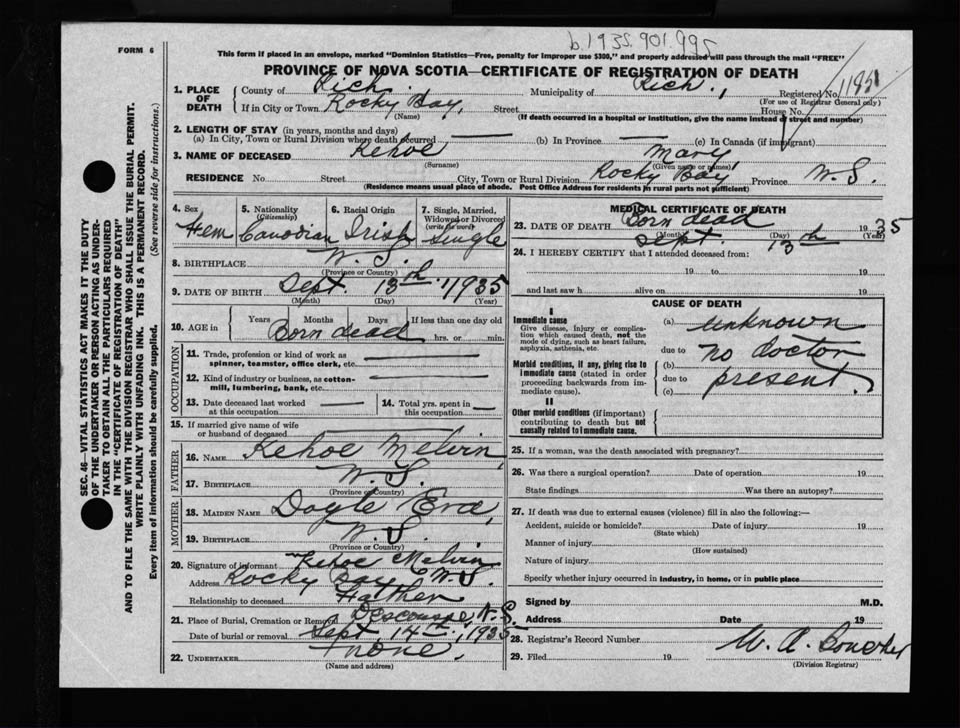 b.1935.901.995
FORM 6
This form if placed in an envelope, marked "Dominion Statistics—Free, penalty for improper use $300," and properly addressed will pass through the mail "FREE"
PROVINCE OF NOVA SCOTIA—CERTIFICATE OF REGISTRATION OF DEATH
1. PLACE OF DEATH County of Rich. Municipality of Rich., Registered No.
(For use of Registrar General only)
If in City or Town Rocky Bay, Street House No.
(Name) (If death occurred in a hospital or institution, give the name instead of street and number)
2. LENGTH OF STAY (in years, months and days)
(a) In City, Town or Rural Division where death occurred — (b) In Province — (c) In Canada (if immigrant)
3. NAME OF DECEASED Kehoe Mary,
(Surname) (Given name or names)
RESIDENCE No. Street City, Town or Rural Division Rocky Bay, Province N.S.
(Residence means usual place of abode. Post Office Address for residents in rural parts not sufficient)
SEC. 46—VITAL STATISTICS ACT MAKES IT THE DUTY
OF THE UNDERTAKER OR PERSON ACTING AS UNDER-
TAKER TO OBTAIN ALL THE PARTICULARS REQUIRED
IN THE "CERTIFICATE OF REGISTRATION OF DEATH"
AND TO FILE THE SAME WITH THE DIVISION REGISTRAR WHO SHALL ISSUE THE BURIAL PERMIT.
WRITE PLAINLY WITH UNFADING INK. THIS IS A PERMANENT RECORD.
Every item of information should be carefully supplied. (See reverse side for instructions.)
4. Sex 5. Nationality (Citizenship) 6. Racial Origin 7. Single, Married, Widowed or Divorced (write the word)
Fem Canadian Irish Single
8. BIRTHPLACE N.S.
(Province or Country)
9. DATE OF BIRTH Sept. 13th 1935
(Month) (Day) (Year)
10. AGE in Years Months Days If less than one day old
Born dead hrs. or min.
OCCUPATION
11. Trade, profession or kind of work as
spinner, teamster, office clerk, etc. —
12. Kind of industry or business, as cotton-
mill, lumbering, bank, etc. —
13. Date deceased last worked at this occupation — 14. Total yrs. spent in this occupation —
15. If married give name of wife
or husband of deceased —
FATHER
16. NAME Kehoe Melvin,
17. BIRTHPLACE N.S.
(Province or Country)
MOTHER
18. MAIDEN NAME Doyle Eva,
19. BIRTHPLACE N.S.
(Province or Country)
20. Signature of informant Kehoe Melvin
Address Rocky Bay N.S.
Relationship to deceased Father
21. Place of Burial, Cremation or Removal Descousse, N.S.
Date of burial or removal Sept. 14th, 1935
22. UNDERTAKER none,
(Name and address)
MEDICAL CERTIFICATE OF DEATH
Born dead
23. DATE OF DEATH Sept. 13th 1935
(Month) (Day) (Year)
24. I HEREBY CERTIFY that I attended deceased from:
19 to 19
and last saw h alive on 19
CAUSE OF DEATH
I
Immediate cause
Give disease, injury or complica-
tion which caused death, not the
mode of dying, such as heart failure,
asphyxia, asthenia, etc.
(a) unknown
due to
Morbid conditions, if any, giving rise to
immediate cause (stated in order
proceeding backwards from im-
mediate cause).
(b) no doctor
due to
(c) present,
II
Other morbid conditions (if important)
contributing to death but not
causally related to immediate cause.
25. If a woman, was the death associated with pregnancy?
26. Was there a surgical operation? Date of operation 19
State findings Was there an autopsy?
27. If death was due to external causes (violence) fill in also the following:—
Accident, suicide or homicide? Date of injury 19
(State which)
Manner of injury
(How sustained)
Nature of injury
Specify whether injury occurred in industry, in home, or in public place
Signed by M.D.
Address Date 19
28. Registrar's Record Number
29. Filed 19 W. A.
(Division Registrar)